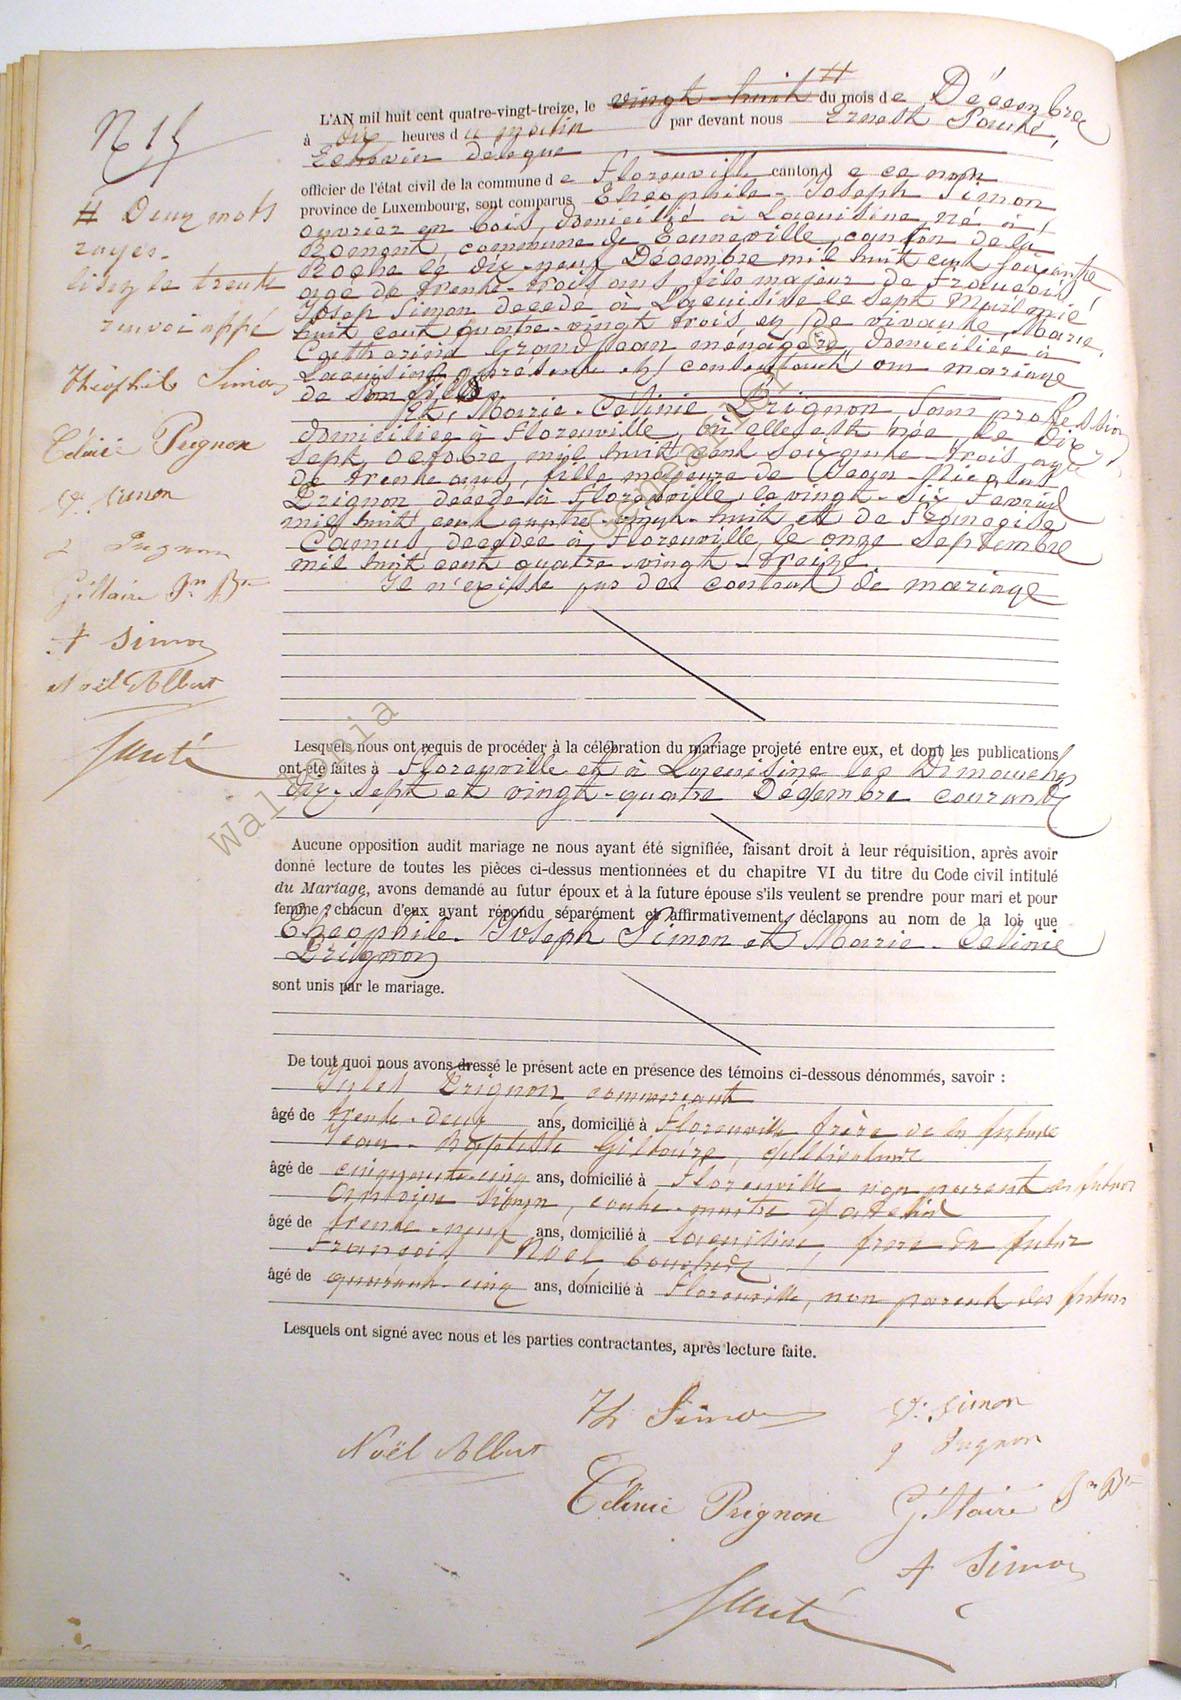 N 15
# Deux mots
rayés.
lisez le trente
renvoi appé
Théophile Simon
Célinie Prignon
V. Simon
J Prignon
Giltaire Jn Bte
A Simon
Noël Albert
L'AN mil huit cent quatre-vingt-treize, le vingt-huit # du mois de Décembre
à dix heures du matin par devant nous Ernest
Echevin délégué
officier de l'état civil de la commune de Florenville canton de ce nom
province de Luxembourg, sont comparus Théophile-Joseph Simon
ouvrier en bois, domicilié à Lacuisine, né à
commune de Tenneville, canton de La
Roche le dix-neuf Décembre mil huit cent soixante
agé de trente-trois ans, fils majeur de François
Josep Simon décédé à Lacuisine le sept Mai mil
huit cent quatre-vingt trois, et de vivante, Marie
Catherine Grandjean ménagère, domiciliée à
Lacuisine présente et consentant au mariage
de son fils.
Et, Marie-Célinie Prignon, sans profession
domiciliée à Florenville, où elle est née, le dix
sept octobre mil huit cent soixante-trois agée
de trente ans, fille majeure de Jean-Nicolas
Prignon, décédé à Florenville, le vingt-six Février
mil huit cent quatre-vingt-huit et de
Camus, décédée à Florenville, le onze Septembre
mil huit cent quatre-vingt-treize
Il n'existe pas de contrat de mariage
Lesquels nous ont requis de procéder à la célébration du mariage projeté entre eux, et dont les publications
ont été faites à Florenville et à Lacuisine les Dimanches
dix-sept et vingt-quatre Décembre courant
Aucune opposition audit mariage ne nous ayant été signifiée, faisant droit à leur réquisition, après avoir
donné lecture de toutes les pièces ci-dessus mentionnées et du chapitre VI du titre du Code civil intitulé
du Mariage, avons demandé au futur époux et à la future épouse s'ils veulent se prendre pour mari et pour
femme ; chacun d'eux ayant répondu séparément et affirmativement, déclarons au nom de la loi que
Théophile-Joseph Simon et Marie-Célinie
Prignon
sont unis par le mariage.
De tout quoi nous avons dressé le présent acte en présence des témoins ci-dessous dénommés, savoir :
Jules Prignon, commerçant
âgé de trente-deux ans, domicilié à Florenville frère de la future
Jean-Baptiste Giltaire, cultivateur
âgé de cinquante-cinq ans, domicilié à Florenville non parent des futurs
Simon, contre-maître d'atelier
âgé de trente-neuf ans, domicilié à Lacuisine, frère du futur
François Noël boucher
âgé de quarante-cinq ans, domicilié à Florenville, non parent des futurs
Lesquels ont signé avec nous et les parties contractantes, après lecture faite.
Th Simon
V. Simon
Noël Albert
J Prignon
Célinie Prignon
Giltaire Jn Bte
A Simon
Wallonia